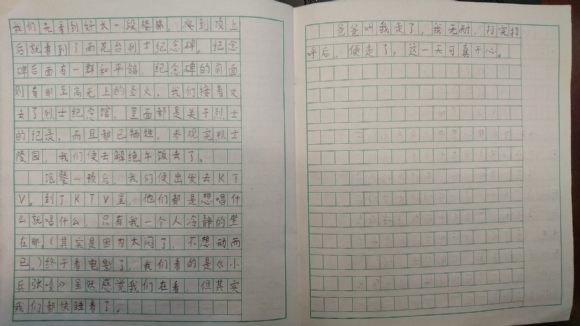 我们先看到好大一段楼梯。爬到顶上
后就看到了
纪念碑。纪念
碑后面有一群和平鸽，纪念碑的
则有那至高无上的圣火。我们接着又
去了烈士纪念馆，里面都是关于烈士
的纪录，而且都已牺牲。参观完烈士
陵园，我们便去解绝午饭去了。
饱餐一顿后，我们便出发去KT
V。到了KTV里，他们都是想唱什
么就唱什么，只有我一个人冷静的坐
在那。（其实是因为太闷了，不想动而
已。）终于看电影了，我们看的是《小
兵张嘎》虽然感觉我们在看，但其实
我们都快睡着了。
爸爸叫我走了，我无耐，打完招
呼后，便走了，这一天可真开心。